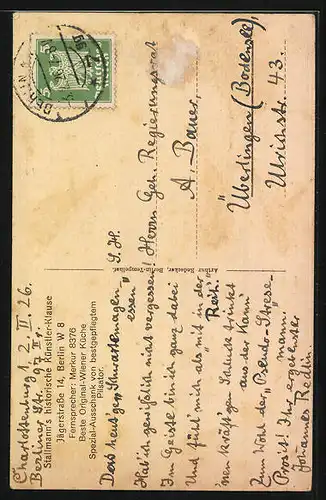 Charlottenburg 1, 2. II. 26.
Berliner Str. 97 II r.
Stallmann's historische Künstler-Klause
Jägerstraße 14, Berlin W 8
Fernsprecher: Merkur 8376
Beste Original-Wiener Küche
Spezial-Ausschank von bestgepflegtem
Pilsator.
essen"
Hab' ich gewißlich nicht vergessen!
Im Geiste bin ich ganz dabei
Und fühl' mich als mit in der "Reih".
'nen kräft'gen Schluck trinket
aus der Kann
Zum Wohl der "Pseudo-Strese-
mann."
Prosit! Ihr ergebenster
Johannes Redin
Arthur Redecker, Berlin-Tempelhof.
S. H.
Herrn Geh. Regierungsrat
A. Bauer,
Überlingen (Bodensee)
Ulrichstr. 43.
BERLIN
5
5